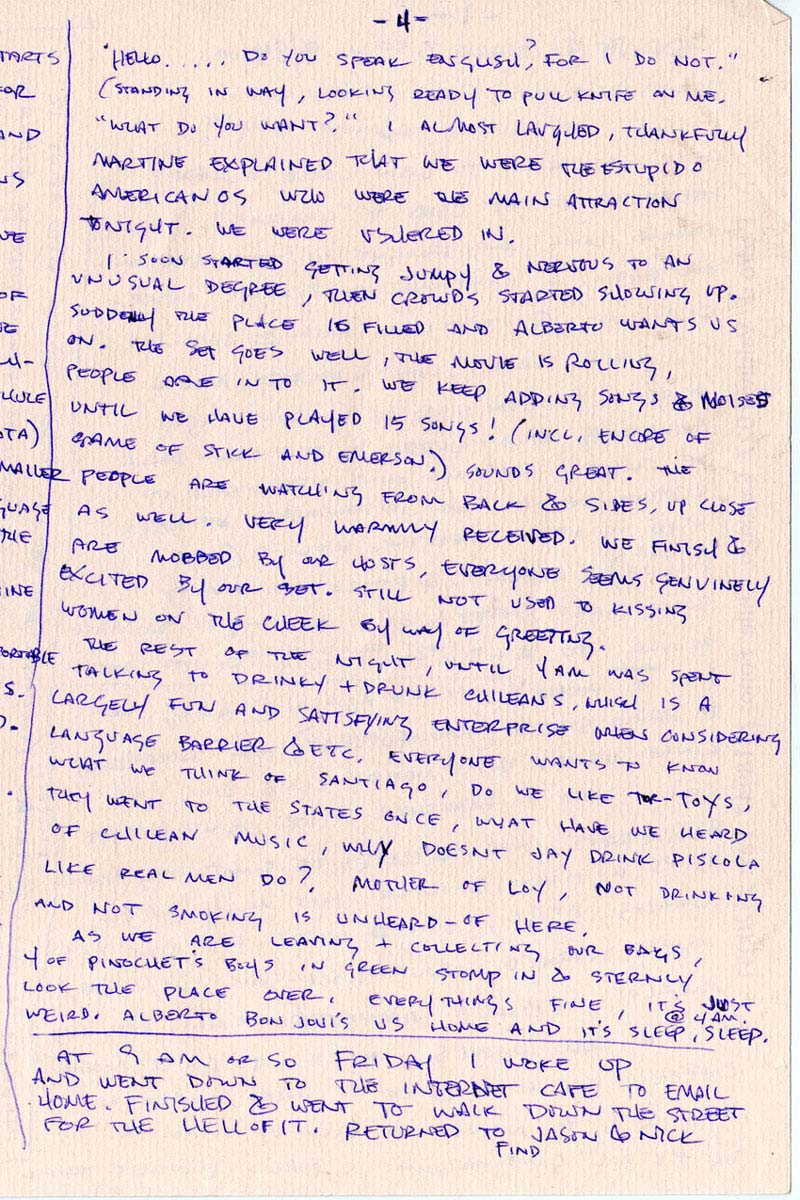 -4-
"HELLO..... DO YOU SPEAK ENGLISH, FOR I DO NOT."
(STANDING IN WAY, LOOKING READY TO PULL KNIFE ON ME.
"WHAT DO YOU WANT?" I ALMOST LAUGHED, THANKFULLY
MARTINE EXPLAINED THAT WE WERE THE ESTUPIDO
AMERICANOS WHO WERE THE MAIN ATTRACTION
TONIGHT. WE WERE USHERED IN.
I SOON STARTED GETTING JUMPY & NERVOUS TO AN
UNUSUAL DEGREE, THEN CROWDS STARTED SHOWING UP.
SUDDENLY THE PLACE IS FILLED AND ALBERTO WANTS US
ON. THE SET GOES WELL, THE MOVIE IS ROLLING,
PEOPLE ARE IN TO IT. WE KEEP ADDING SONGS & NOISES
UNTIL WE HAVE PLAYED 15 SONGS! (INCL. ENCORE OF
GAME OF STICK AND EMERSON.) SOUNDS GREAT. THE
PEOPLE ARE WATCHING FROM BACK & SIDES, UP CLOSE
AS WELL. VERY WARMLY RECEIVED. WE FINISH &
ARE MOBBED BY OUR HOSTS, EVERYONE SEEMS GENUINELY
EXCITED BY OUR SET. STILL NOT USED TO KISSING
WOMEN ON THE CHEEK BY WAY OF GREETING.
THE REST OF THE NIGHT, UNTIL 4 AM WAS SPENT
TALKING TO DRINKY + DRUNK CHILEANS, WHICH IS A
LARGELY FUN AND SATISFYING ENTERPRISE WHEN CONSIDERING
LANGUAGE BARRIER & ETC. EVERYONE WANTS TO KNOW
WHAT WE THINK OF SANTIAGO, DO WE LIKE TOR-TOYS,
THEY WENT TO THE STATES ONCE, WHAT HAVE WE HEARD
OF CHILEAN MUSIC, WHY DOESNT JAY DRINK PISCOLA
LIKE REAL MEN DO? MOTHER OF LOY, NOT DRINKING
AND NOT SMOKING IS UNHEARD-OF HERE.
AS WE ARE LEAVING + COLLECTING OUR BAGS,
4 OF PINOCHET'S BOYS IN GREEN STOMP IN & STERNLY
LOOK THE PLACE OVER. EVERYTHINGS FINE, IT'S JUST
WEIRD. @ 4 AM. ALBERTO BON JOVI'S US HOME AND IT'S SLEEP, SLEEP.
AT 9 AM OR SO FRIDAY I WOKE UP
AND WENT DOWN TO THE INTERNET CAFE TO EMAIL
HOME. FINISHED & WENT TO WALK DOWN THE STREET
FOR THE HELL OF IT. RETURNED TO FIND JASON & NICK
TARTS
FOR
AND
NS
OF
CULE
OTA)
SMALLER
GUAGE
THE
INE
PORTABLE
S.